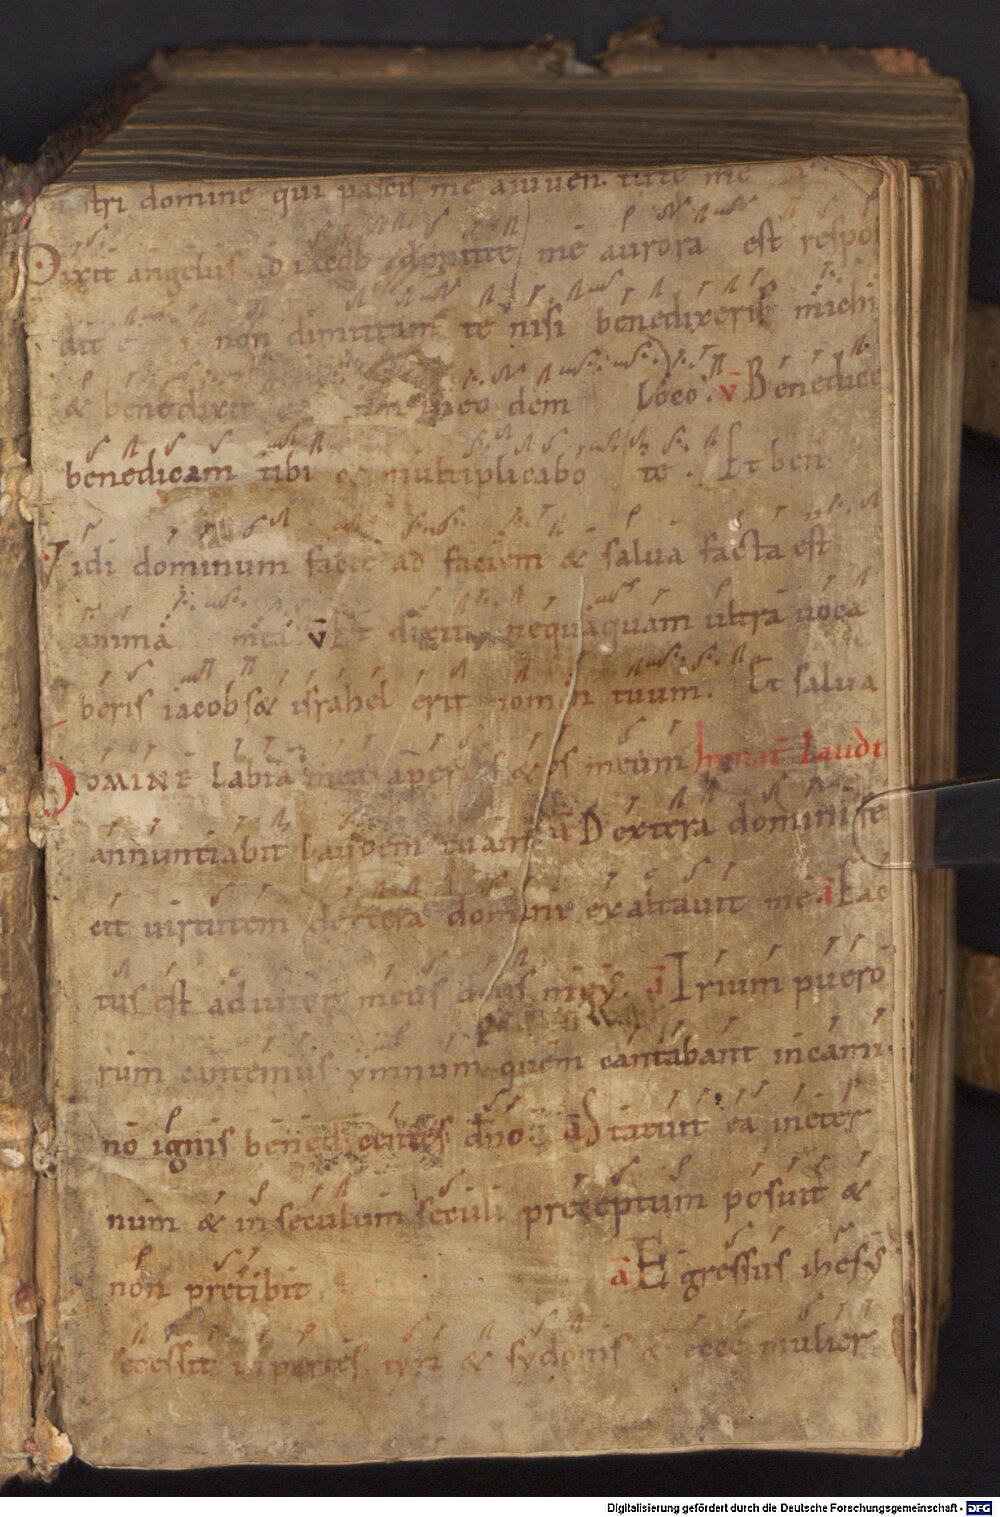 stri domine qui pascis me a iuven tute me a
Dixit angelus ad iacob dimitte me aurora est respon
dit e i non dimittam te nisi benedixeris michi
& benedixit in eo dem loco. v Benedice
benedicam tibi & multiplicabo te. Et ben
Vidi dominum facie ad faciem & salua facta est
anima mea v Et dixit nequaquam ultra uoca
beris iacob s& israhel erit nomen tuum. Et salua
DOMINE labia mea aperies & os meum laudi
annuntiabit laudem tuam a Dextera domini fe
cit uirtutem dextera domini exaltauit me a Fac
tus est adiutor meus deus a Trium puero
rum cantemus ymnum quem cantabant in cami
no ignis benedicentes dno a Statuit ea in eter
num & in seculum seculi preceptum posuit &
non preteribit a Egressus ihesus
secessit in partes tyri & sydonis & ecce mulier
Digitalisierung gefördert durch die Deutsche Forschungsgemeinschaft - DFG